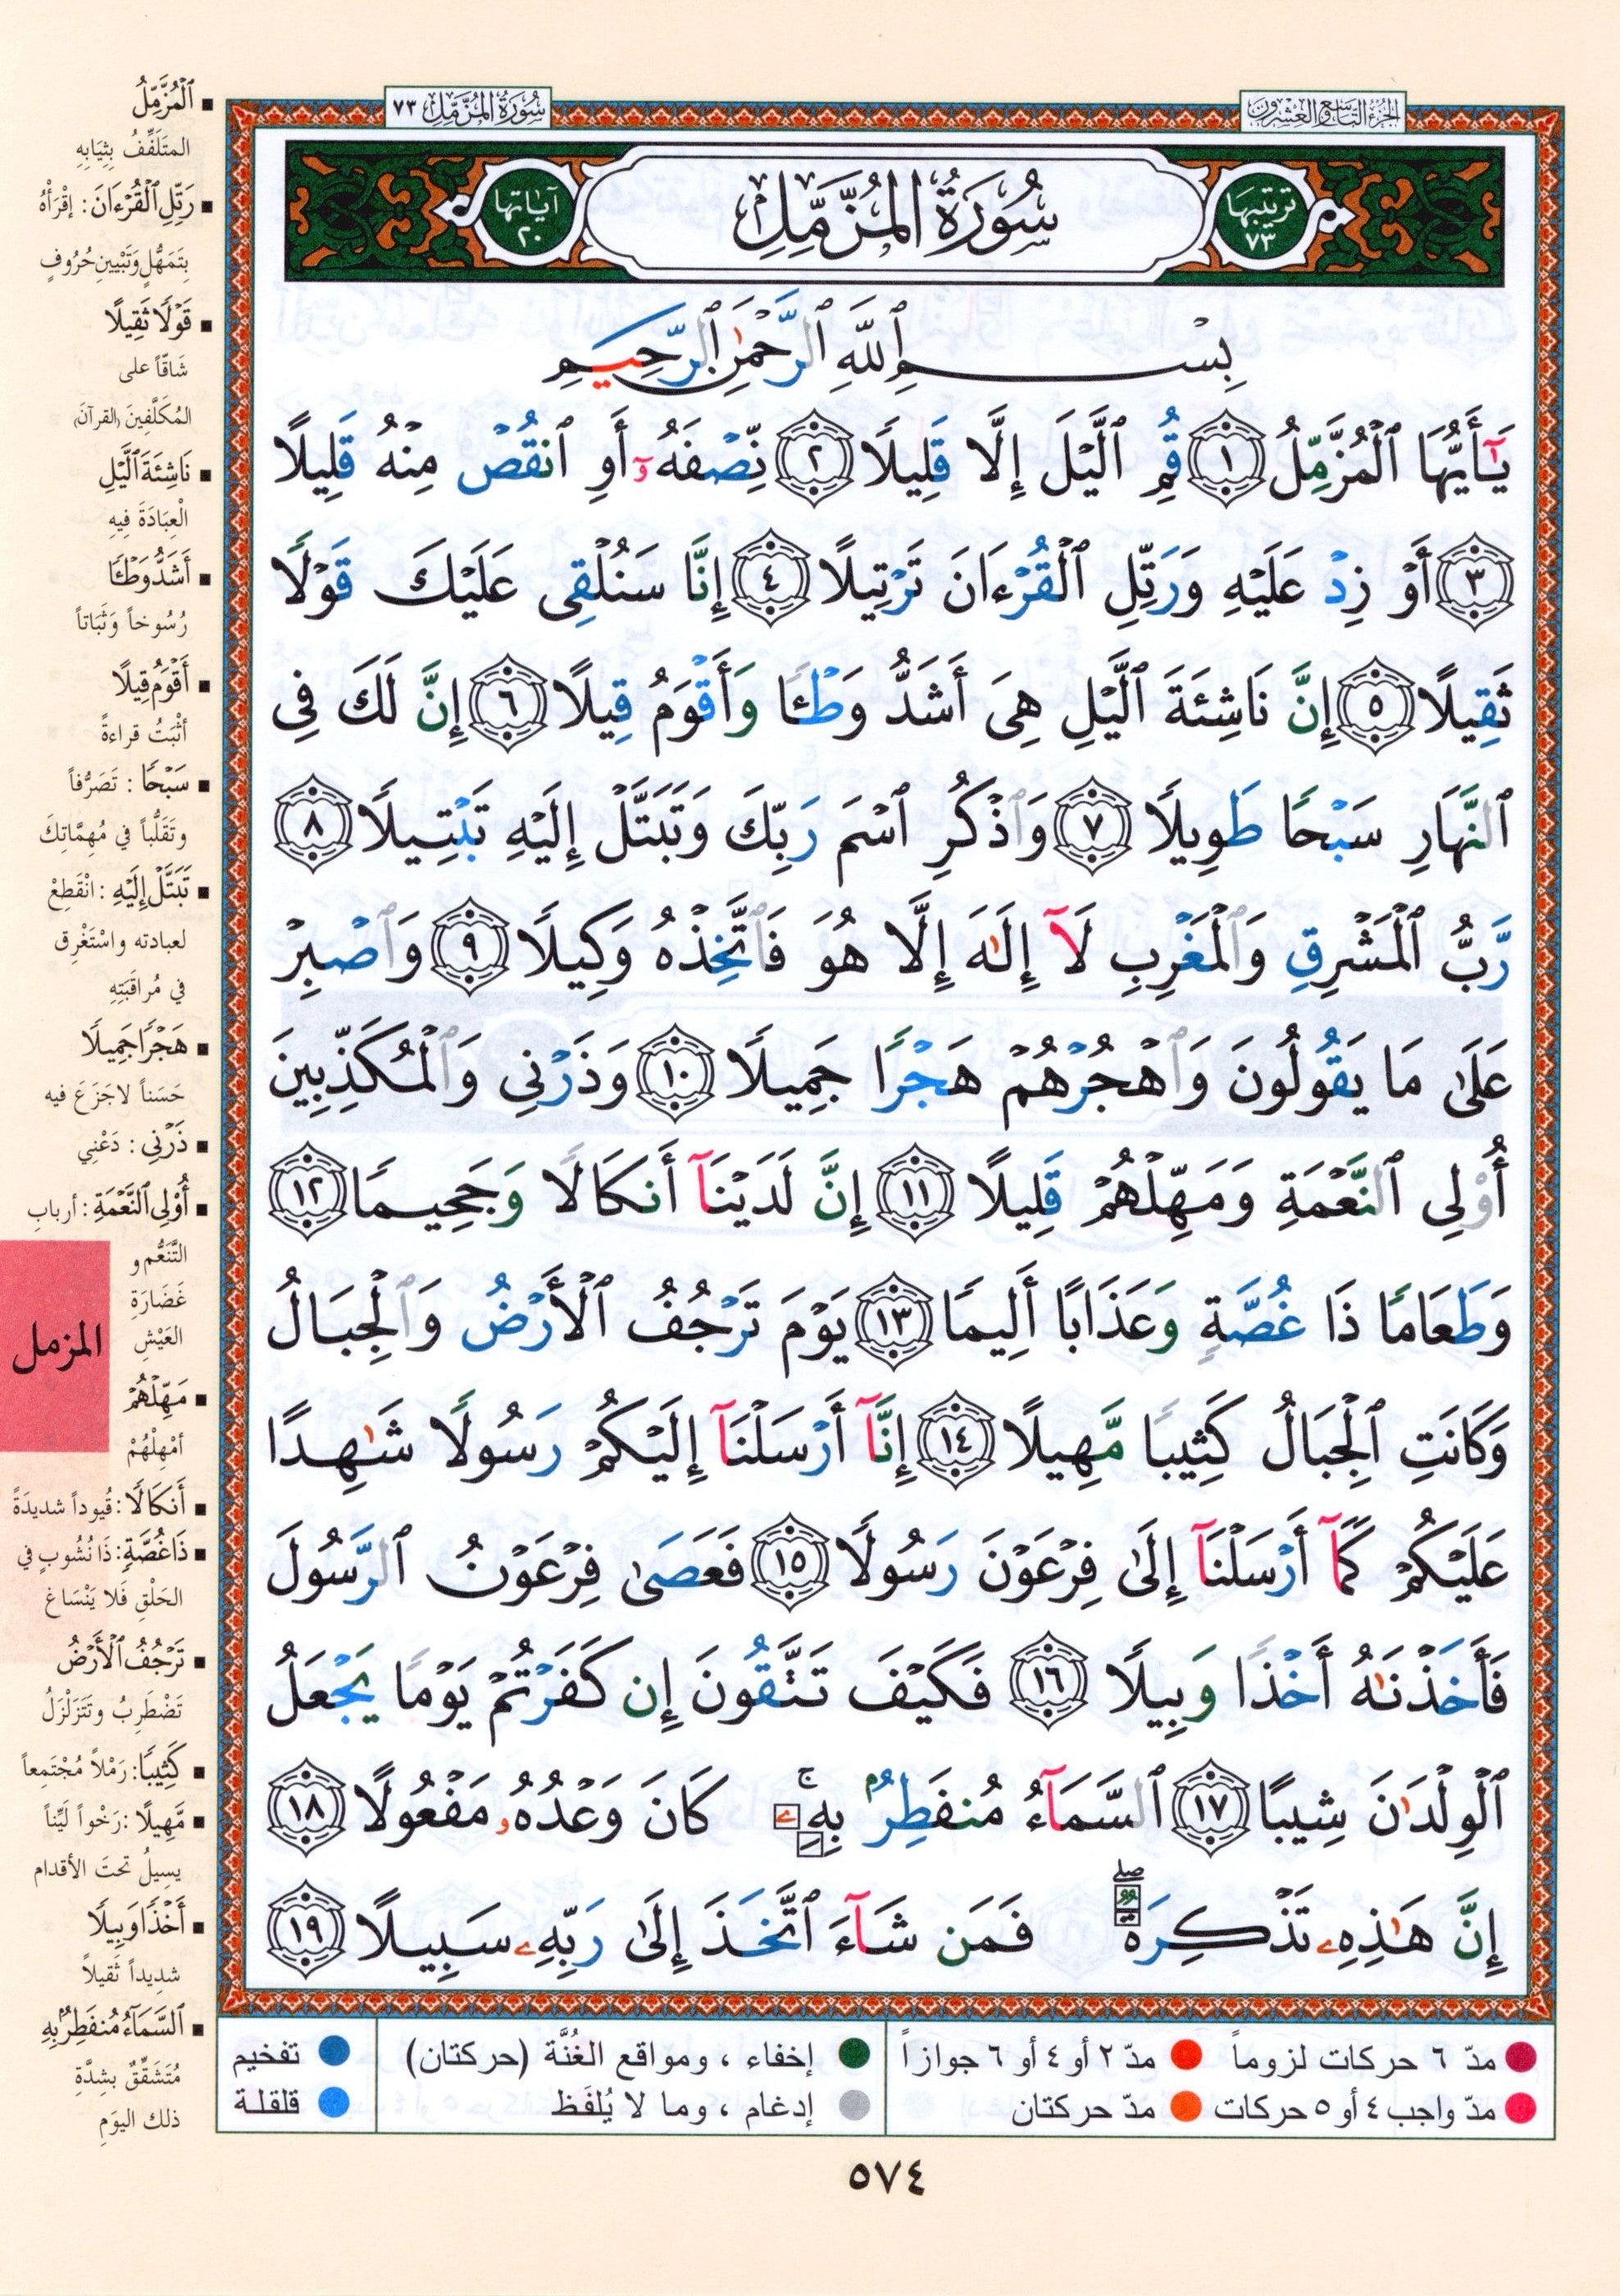 الجزء التاسع والعشرون
سُورَةُ المُزَّمِّلِ ٧٣
ترتيبها ٧٣
سُورَةُ المُزَّمِّلِ
آياتها ٢٠
بِسْمِ ٱللَّهِ ٱلرَّحْمَٰنِ ٱلرَّحِيمِ
يَٰٓأَيُّهَا ٱلْمُزَّمِّلُ ١ قُمِ ٱلَّيْلَ إِلَّا قَلِيلًا ٢ نِّصْفَهُۥٓ أَوِ ٱنقُصْ مِنْهُ قَلِيلًا
٣ أَوْ زِدْ عَلَيْهِ وَرَتِّلِ ٱلْقُرْءَانَ تَرْتِيلًا ٤ إِنَّا سَنُلْقِى عَلَيْكَ قَوْلًا
ثَقِيلًا ٥ إِنَّ نَاشِئَةَ ٱلَّيْلِ هِىَ أَشَدُّ وَطْـًٔا وَأَقْوَمُ قِيلًا ٦ إِنَّ لَكَ فِى
ٱلنَّهَارِ سَبْحًا طَوِيلًا ٧ وَٱذْكُرِ ٱسْمَ رَبِّكَ وَتَبَتَّلْ إِلَيْهِ تَبْتِيلًا ٨
رَّبُّ ٱلْمَشْرِقِ وَٱلْمَغْرِبِ لَآ إِلَٰهَ إِلَّا هُوَ فَٱتَّخِذْهُ وَكِيلًا ٩ وَٱصْبِرْ
عَلَىٰ مَا يَقُولُونَ وَٱهْجُرْهُمْ هَجْرًا جَمِيلًا ١٠ وَذَرْنِى وَٱلْمُكَذِّبِينَ
أُو۟لِى ٱلنَّعْمَةِ وَمَهِّلْهُمْ قَلِيلًا ١١ إِنَّ لَدَيْنَآ أَنكَالًا وَجَحِيمًا ١٢
وَطَعَامًا ذَا غُصَّةٍ وَعَذَابًا أَلِيمًا ١٣ يَوْمَ تَرْجُفُ ٱلْأَرْضُ وَٱلْجِبَالُ
وَكَانَتِ ٱلْجِبَالُ كَثِيبًا مَّهِيلًا ١٤ إِنَّآ أَرْسَلْنَآ إِلَيْكُمْ رَسُولًا شَٰهِدًا
عَلَيْكُمْ كَمَآ أَرْسَلْنَآ إِلَىٰ فِرْعَوْنَ رَسُولًا ١٥ فَعَصَىٰ فِرْعَوْنُ ٱلرَّسُولَ
فَأَخَذْنَٰهُ أَخْذًا وَبِيلًا ١٦ فَكَيْفَ تَتَّقُونَ إِن كَفَرْتُمْ يَوْمًا يَجْعَلُ
ٱلْوِلْدَٰنَ شِيبًا ١٧ ٱلسَّمَآءُ مُنفَطِرٌۢ بِهِۦ ۚ كَانَ وَعْدُهُۥ مَفْعُولًا ١٨
إِنَّ هَٰذِهِۦ تَذْكِرَةٌ ۖ فَمَن شَآءَ ٱتَّخَذَ إِلَىٰ رَبِّهِۦ سَبِيلًا ١٩
ٱلْمُزَّمِّلُ
المتَلَفِّفُ بِثِيَابِهِ
رَتِّلِ ٱلْقُرْءَانَ: إقْرَأْهُ
بِتَمَهُّلٍ وَتَبْيِينِ حُرُوفٍ
قَوْلًا ثَقِيلًا
شَاقّاً على
المُكَلَّفِينَ (القرآن)
نَاشِئَةَ ٱلَّيْلِ
الْعِبَادَةَ فِيهِ
أَشَدُّ وَطْـًٔا
رُسُوخاً وَثَبَاتاً
أَقْوَمُ قِيلًا
أَثْبَتُ قراءةً
سَبْحًا: تَصَرُّفاً
وتَقَلُّباً في مُهِمَّاتِكَ
تَبَتَّلْ إِلَيْهِ: انْقَطِعْ
لعبادته واسْتَغْرِق
في مُراقَبَتِهِ
هَجْرًا جَمِيلًا
حَسَناً لاجَزَعَ فيه
ذَرْنِى: دَعْنِي
أُو۟لِى ٱلنَّعْمَةِ: أربابِ
التَّنَعُّم و
غَضَارَةِ
العَيْشِ
مَهِّلْهُمْ
أمْهِلْهُمْ
أَنكَالًا: قُيوداً شديدَةً
ذَا غُصَّةٍ: ذَا نُشُوبٍ في
الحَلْقِ فَلا يَنْسَاغ
تَرْجُفُ ٱلْأَرْضُ
تَضْطَرِبُ وتَتَزَلْزَلُ
كَثِيبًا: رَمْلاً مُجْتَمِعاً
مَّهِيلًا: رَخْواً لَيِّناً
يسِيلُ تحتَ الأقدام
أَخْذًا وَبِيلًا
شدِيداً ثَقيلاً
ٱلسَّمَآءُ مُنفَطِرٌۢ بِهِ
مُتَشَقِّقٌ بشِدَّةِ
ذلك اليومِ
المزمل
مدّ ٦ حركات لزوماً
مدّ ٢ أو ٤ أو ٦ جوازاً
إخفاء ، ومواقع الغُنَّة (حركتان)
تفخيم
مدّ واجب ٤ أو ٥ حركات
مدّ حركتان
إدغام ، وما لا يُلفَظ
قلقلة
٥٧٤